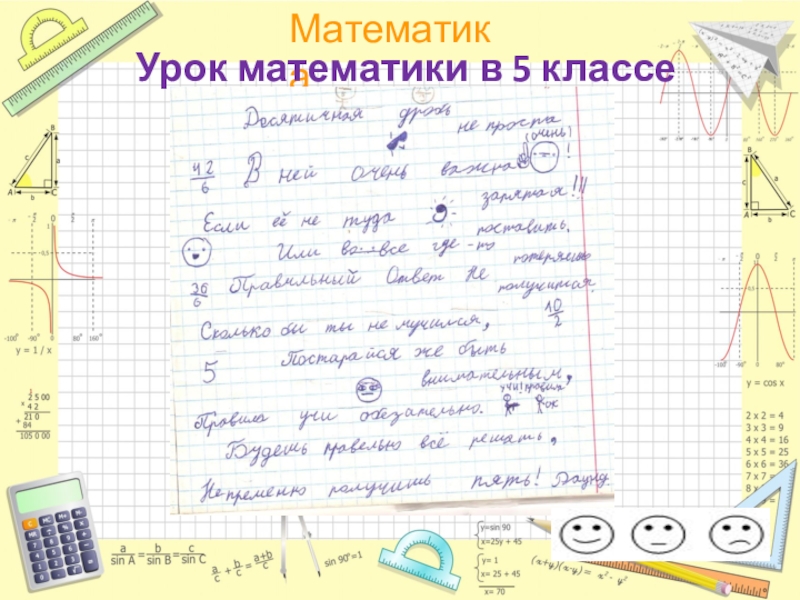 Математик
а
Урок математики в 5 классе
Десятичная дробь не проста
(очень)
42/6 В ней очень важна !
запятая!!!
Если её не туда поставить.
Или во...все где-то потеряешь
36/6 Правильный Ответ Не получится.
Сколько бы ты не мучился,
10/2
5 Постарайся же быть
внимательным,
учи! правила
Правила учи обезательно. ок
Будешь правельно всё решать,
Непременно получишь пять!
A B C a b c
A B C a b c
y = 1 / x
y = cos x
x 2 5 00
4 2
+ 21 0
84
105 0 00
2 x 2 = 4
3 x 3 = 9
4 x 4 = 16
5 x 5 = 25
6 x 6 = 36
7 x 7 =
a/sin A = b/sin B = c/sin C
a/c + b/c = a+b/c
sin 90°=1
y=sin 90
x=25y + 45
y= 1
x= 25 + 45
x= 70
(x+y)(x-y) = x² - y²